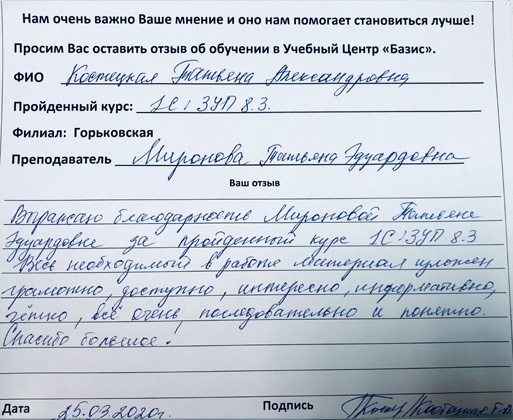 Нам очень важно Ваше мнение и оно нам помогает становиться лучше!
Просим Вас оставить отзыв об обучении в Учебный Центр «Базис».
ФИО Костецкая Татьяна Александровна
Пройденный курс: 1С:ЗУП 8.3.
Филиал: Горьковская
Преподаватель Миронова Татьяна Эдуардовна
Ваш отзыв
Выражаю благодарность Мироновой Татьяне
Эдуардовне за пройденный курс 1С:ЗУП 8.3
Весь необходимый в работе материал изложен
грамотно, доступно, интересно, информативно,
чётко, всё очень последовательно и понятно.
Спасибо большое!
Дата 25.03.2020г. Подпись Костецкая Т.А.